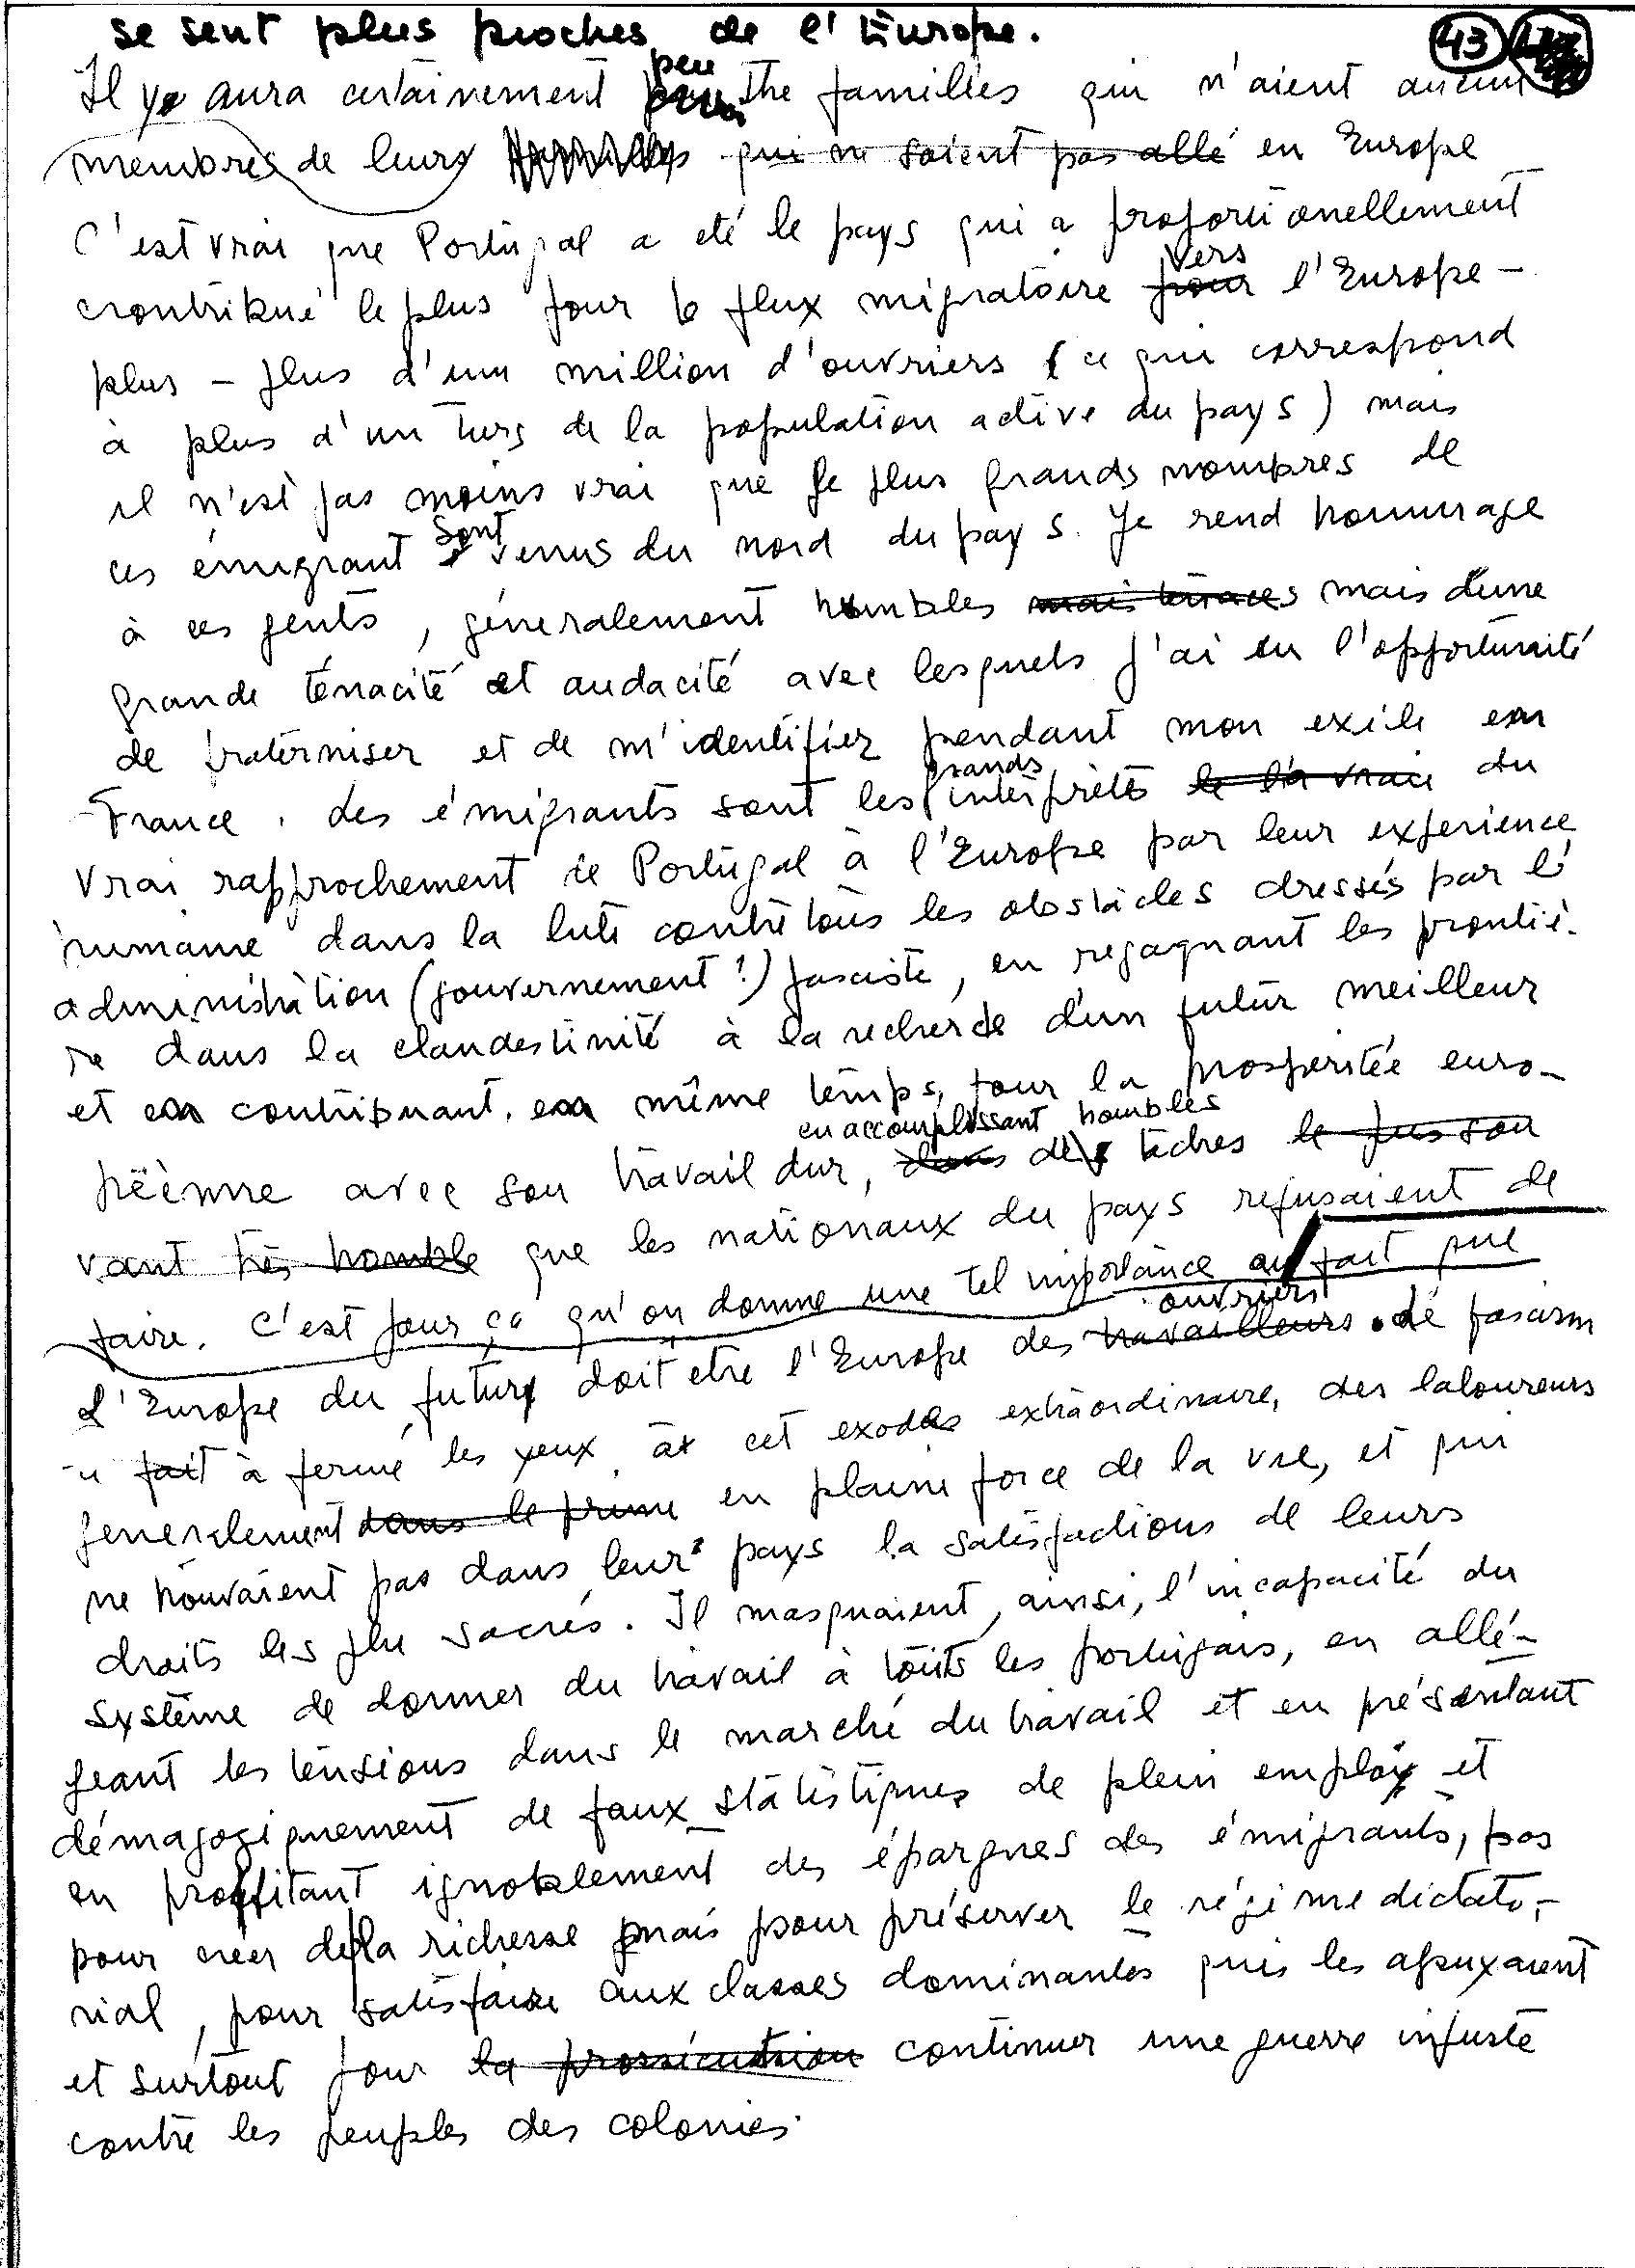 se sent plus proches de l'Europe. 43
Il y aura certainement peu the familles qui n'aient aucun
membres de leurs qui ne soient pas allé en Europe
C'est vrai que Portugal a eté le pays qui a proportionellement
crontribué le plus pour le flux migratoire pour vers l'Europe -
plus - plus d'un million d'ouvriers (ce qui correspond
à plus d'un tiers de la population active du pays) mais
il n'est pas moins vrai que le plus grands nombres de
ces émigrant sont venus du nord du pays. Je rend hommage
à ces gents, géneralement humbles mais tenaces mais d'une
grande ténacité et audacité avec lesquels j'ai eu l'opportunité
de fraterniser et de m'identifier pendant mon exile en
France. des émigrants sont les grands interprètes de la vraie du
vrai rapprochement de Portugal à l'Europe par leur experience
humaine dans la lute contre tous les obstàcles dressés par l'
administration (gouvernement?) fasciste, en regagnant les frontié-
re dans la clandestinité à la recherche d'un futur meilleur
et en contribuant, en même temps, pour la prosperitée euro-
péènne avec son travail dur, dans en accomplissant des humbles tâches
vant très humble que les nationaux du pays refusaient de
faire. C'est pour ça qu'on donne une tel importance au fait que
l'Europe du future doit etre l'Europe des travailleurs ouvriers. Le fascism
e fait à fermé les yeux à cet exode extraordinaire, des laboureurs
generalement dans le prime en plaine force de la vie, et qui
ne trouvaient pas dans leur pays la satisfactions de leurs
droits les plu sacrés. Il masquaient, ainsi, l'incapacité du
système de donner du travail à touts les portugais, en allé-
geant les tensions dans le marché du travail et en présentant
démagogiquement de faux statistiques de plein emploi et
en profitant ignoblement des épargnes des émigrants, pas
pour créer de la richesse mais pour préserver le régime dictato-
rial, pour satisfaire aux classes dominantes qui les apuyaient
et surtout pour la prossécution continuer une guerre injuste
contre les peuples des colonies.